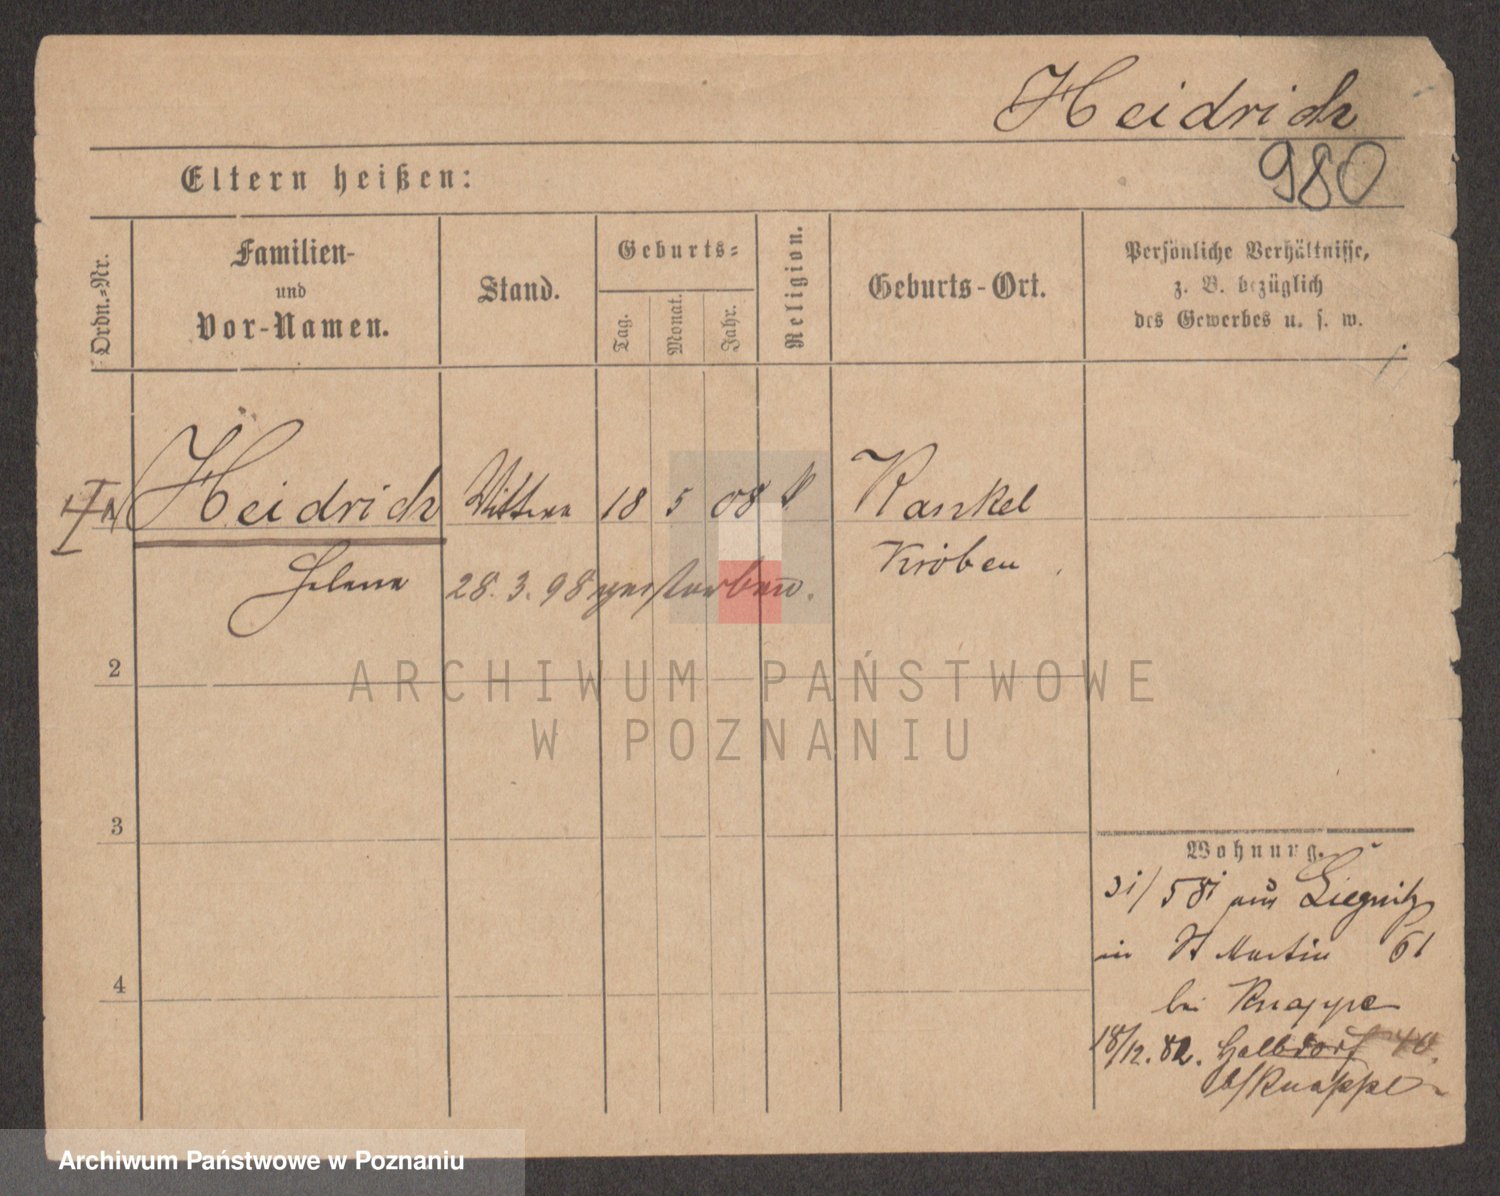 Heidrich
980
Eltern heißen:
Ordn.-Nr.
Familien-
und
Vor-Namen.
Stand.
Geburts-
Tag.
Monat.
Jahr.
Religion.
Geburts-Ort.
Persönliche Verhältnisse,
z. B. bezüglich
des Gewerbes u. s. w.
Heidrich 18 5 08 Rankel
Helene 28. 3. 98 verstorben. Kröben
2
3
4
Wohnung.
31/5 81 aus Liegnitz
in St Martin 61
bei Knappe
18/12. 82. Halbdorf 40.
b/Knappe
ARCHIWUM PAŃSTWOWE
W POZNANIU
Archiwum Państwowe w Poznaniu